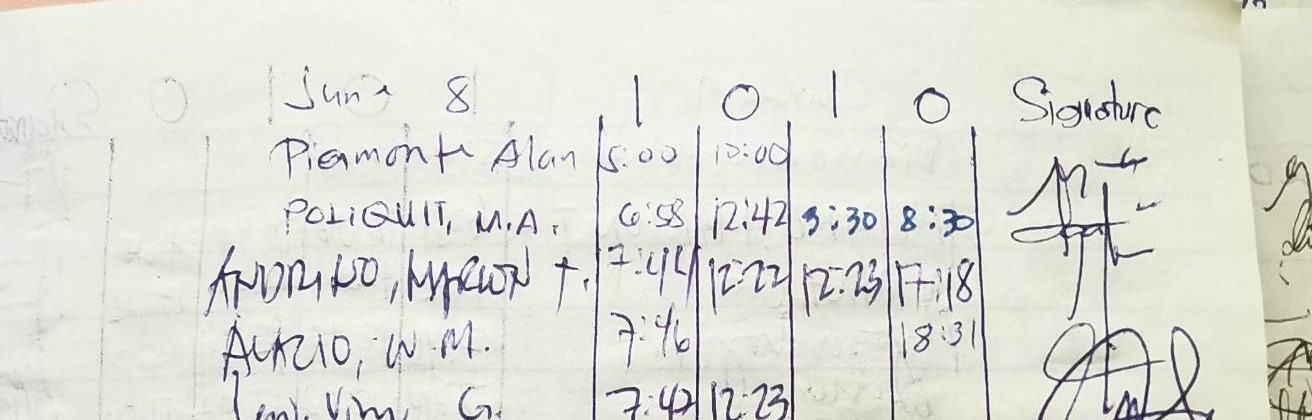 June 8 I O I O Signature
Piamonte Alan 5:00 10:00
POLIQUIT, M.A. 6:58 12:42 3:30 8:30
ANDRINO, MARLON T. 7:44 12:22 12:23 17:18
W.M. 7:46 18:31
G. 7:42 12:23